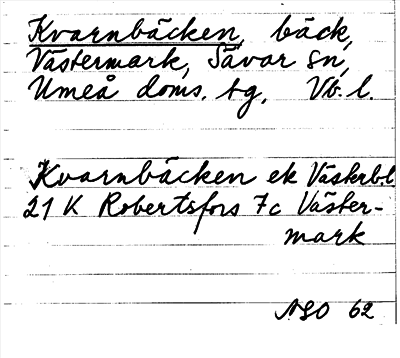 Kvarnbäcken, bäck,
Västermark, Sävar sn,
Umeå doms. tg, Vb. l.
Kvarnbäcken ek Västerb.l.
21 K Robertsfors 7c Väster-
mark
ASO 62